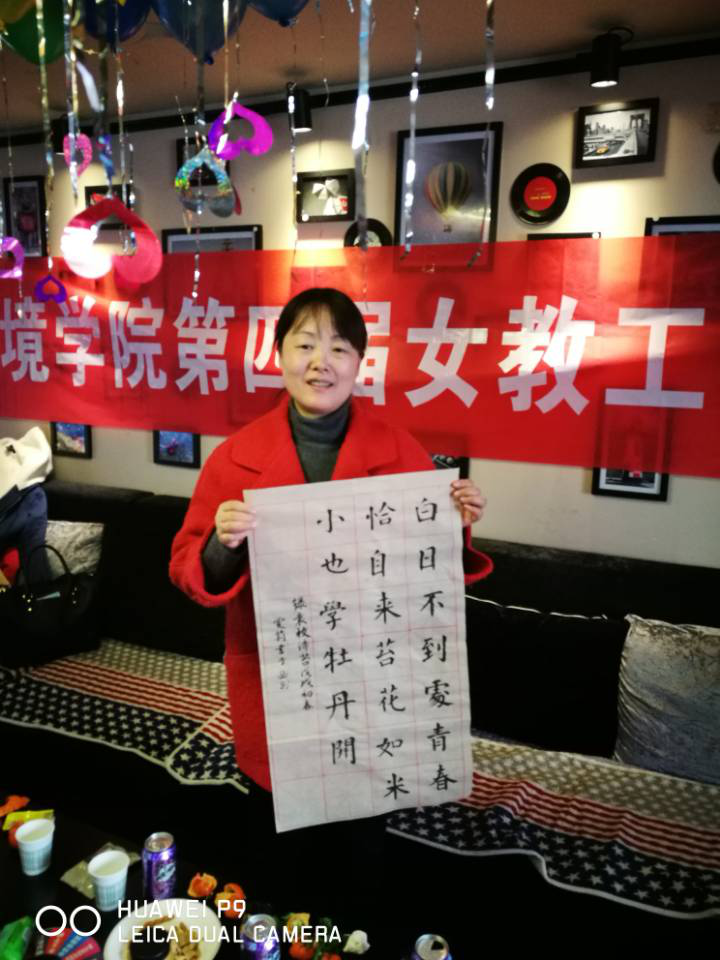 境学院第四届女教工
白日不到處青春
恰自来苔花如米
小也學牡丹開
錄袁枚诗苔戊戌初春
書于
HUAWEI P9
LEICA DUAL CAMERA